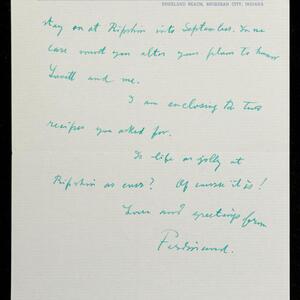 DUNELAND BEACH, MICHIGAN CITY, INDIANA
stay on at Ripshin into September. In no
case must you alter your plans to humor
Lovett and me.
I am enclosing the two
recipes you asked for.
Is life as jolly at
Ripshin as ever? Of course it is!
Love and greetings from
Ferdinand.